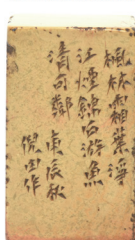 楓林霜葉淨
江煙錦石游魚
清可鄰
庚辰秋
倪田作